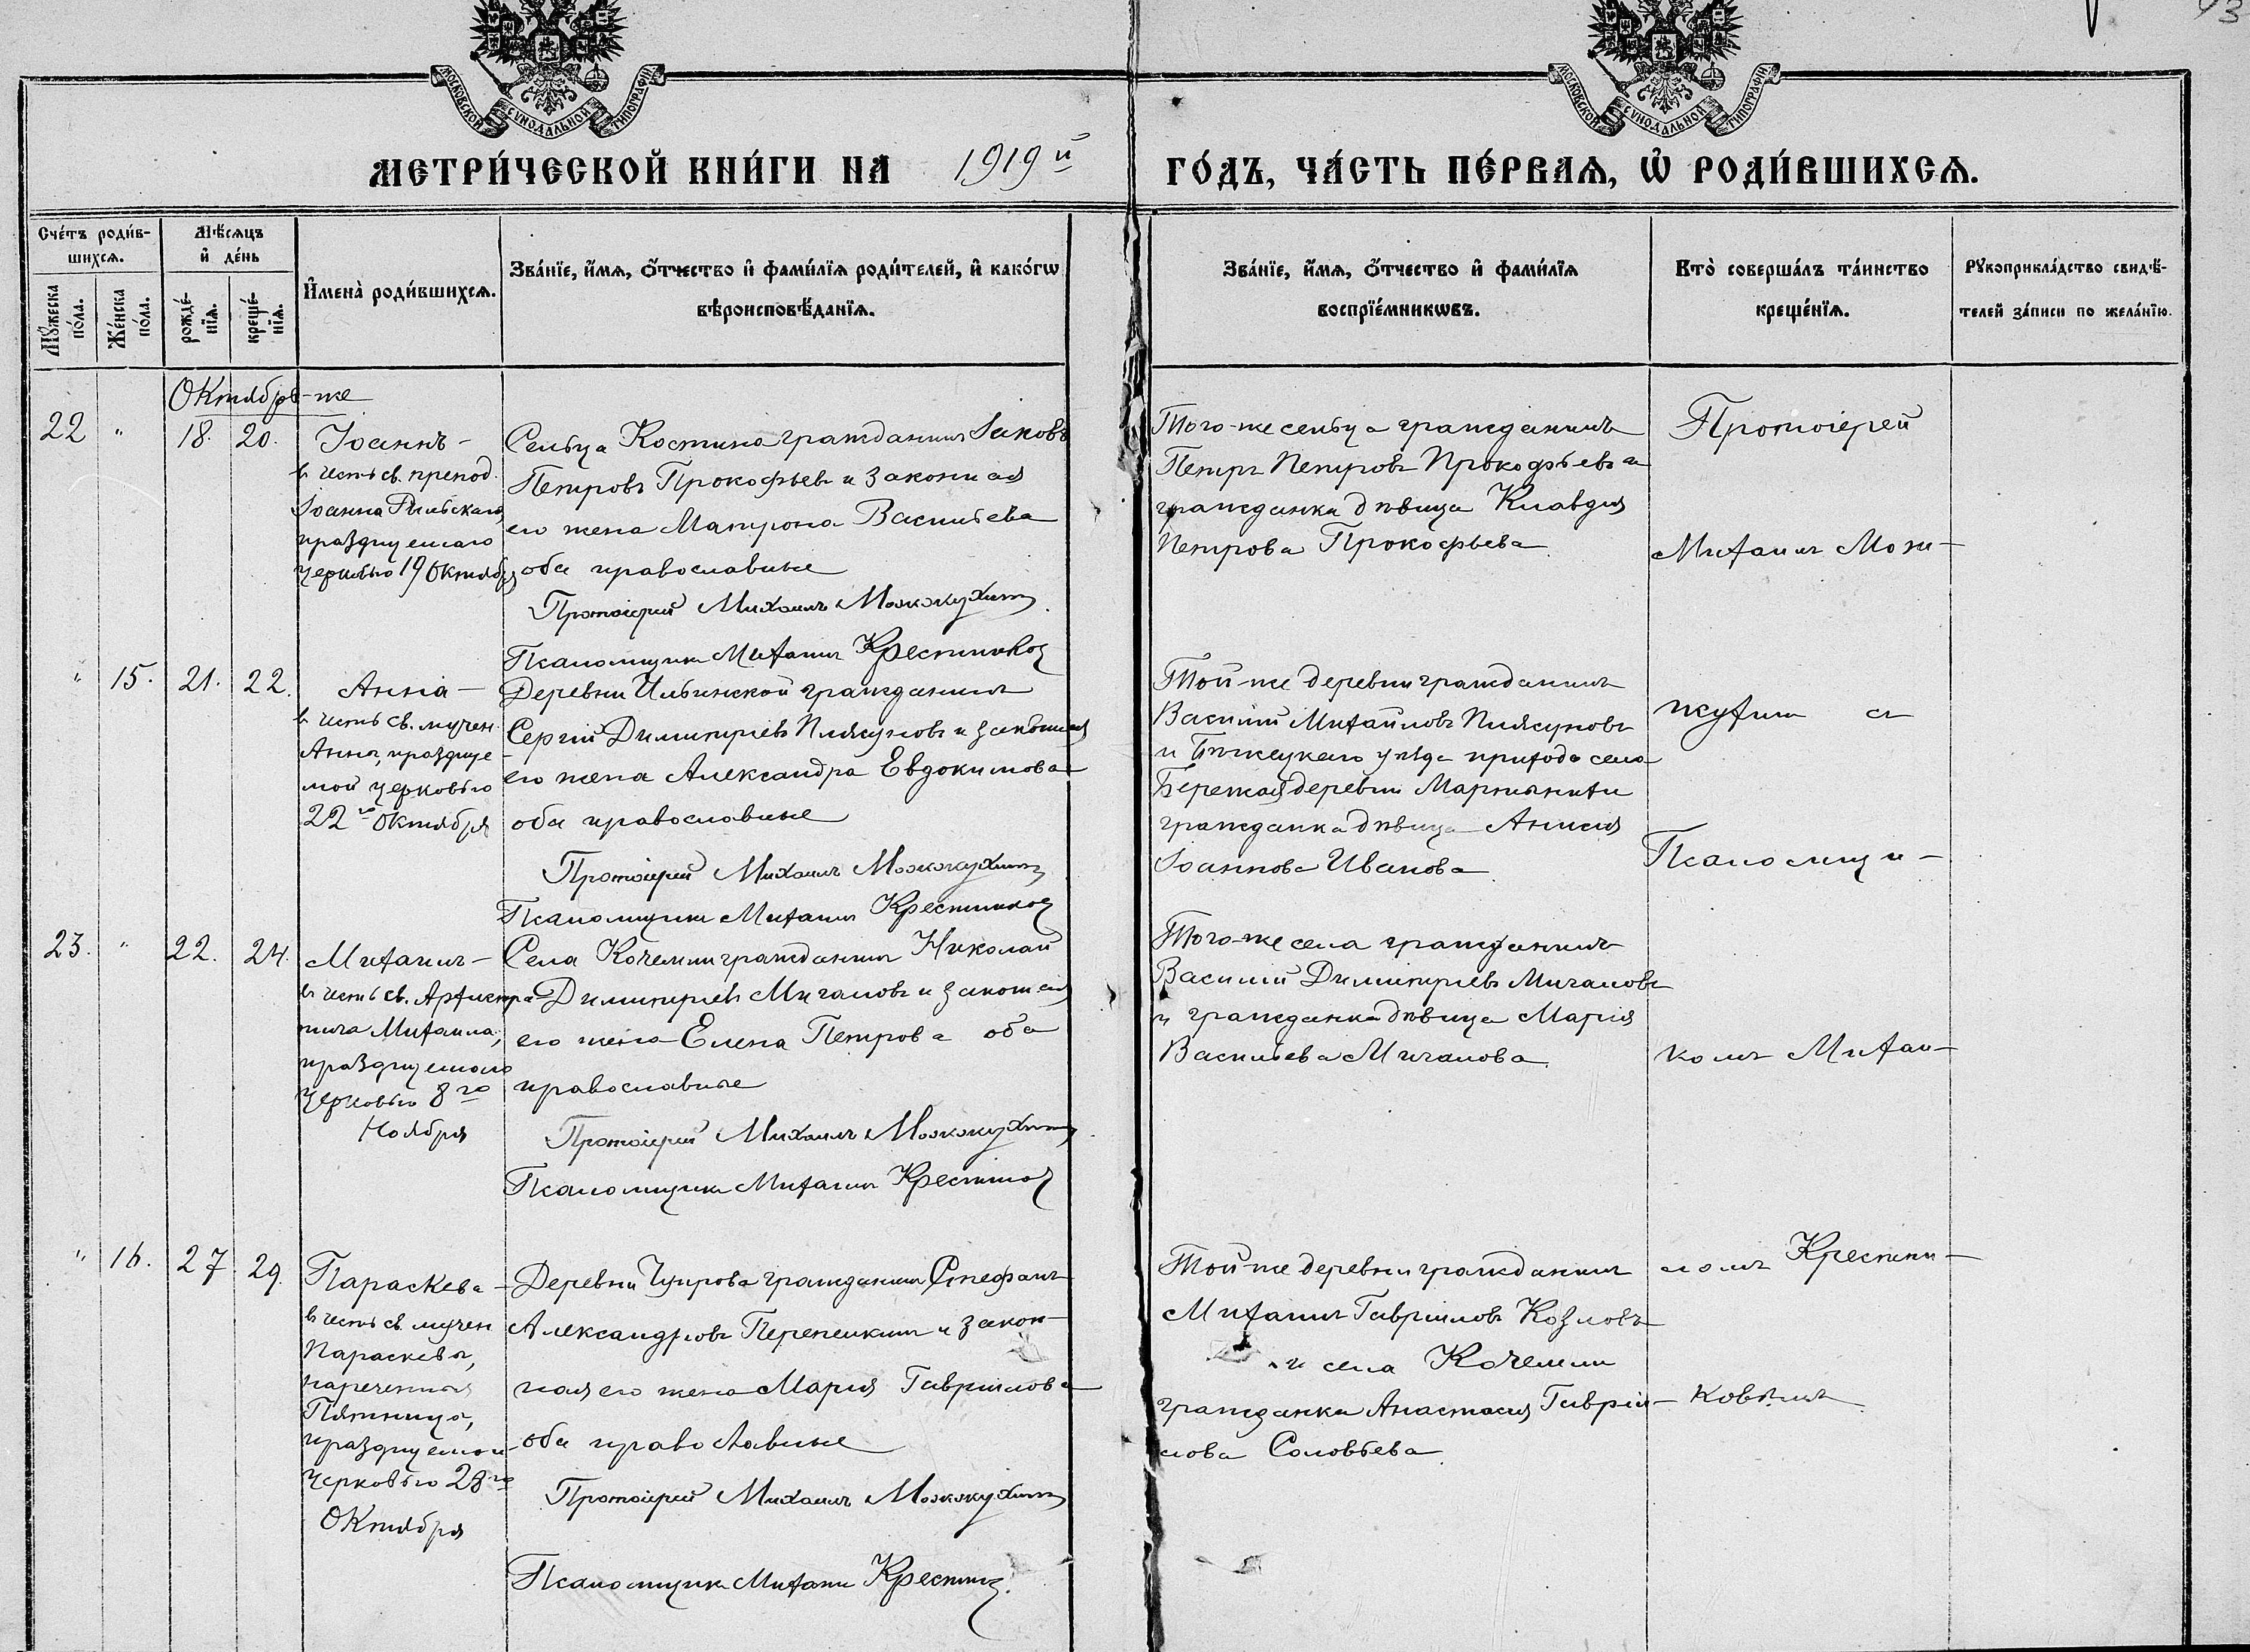 МОСКОВСКОЙ СѴНОДАЛЬНОЙ ТИПОГРАФІИ
МОСКОВСКОЙ СѴНОДАЛЬНОЙ ТИПОГРАФІИ
МЕТРИ́ЧЕСКОЙ КНИ́ГИ НА 1919й ГО́ДЪ, ЧА́СТЬ ПЕ́РВАѦ, Ѡ҆ РОДИ́ВШИХСѦ.
Сче́тъ роди́в-
шихсѧ.
Мꙋ́жеска по́ла.
Же́нска по́ла.
Мѣ́сѧцъ
и҆ де́нь
рожде́-нїѧ.
креще́-нїѧ.
И҆мена̀ роди́вшихсѧ.
Зва́нїе, и҆́мѧ, ѻ҆́тчество и҆ фами́лїѧ роди́телей, и҆ како́гѡ
вѣроисповѣ́данїѧ.
Зва́нїе, и҆́мѧ, ѻ҆́тчество и҆ фами́лїѧ
воспрїе́мникѡвъ.
Кто̀ соверша́лъ та́инство
креще́нїѧ.
Рꙋкоприкла́дство свидѣ́-
телей за́писи по жела́нїю.
Октябрь-же
22 " 18. 20.
Іоаннъ -
въ честь св. препод.
Іоанна Рыльскаго,
празднуемаго
Церковью 19 Октября
Сельца Костина гражданинъ Іаковъ
Петровъ Прокофьевъ и законная
его жена Матрона Васильева
оба православные
Протоіерей Михаилъ Можжухинъ
Псаломщикъ Михаилъ Крестниковъ
Того-же сельца гражданинъ
Петръ Петровъ Прокофьевъ и
гражданка дѣвица Клавдія
Петрова Прокофьева.
Протоіерей
Михаилъ Мож-
" 15. 21. 22.
Анна -
въ честь св. мучен.
Анны, праздуе-
мой церковью
22го Октября
Деревни Ильинской гражданинъ
Сергій Димитріевъ Плясуновъ и законная
его жена Александра Евдокимова
оба православные
Протоіерей Михаилъ Можжухинъ
Псаломщикъ Михаилъ Крестниковъ
Той-же деревни гражданинъ
Василій Михайловъ Плясуновъ
и Бѣжецкаго уѣзда прихода села
деревни
гражданка дѣвица Анисія
Іоаннова Иванова.
жухинъ съ
Псаломщи-
23. " 22. 24.
Михаилъ -
въ честь св. Архистра-
тига Михаила,
празднуемаго
Церковью 8го
Ноября
Села Кочемли гражданинъ Николай
Димитріевъ Мигаловъ и законная
его жена Елена Петрова оба
православные
Протоіерей Михаилъ Можжухинъ
Псаломщикъ Михаилъ Крестниковъ
Того-же села гражданинъ
Василій Димитріевъ Мигаловъ
и гражданка дѣвица Марія
Васильева Мигалова.
комъ Михаи-
" 16. 27. 29.
Параскева -
въ честь св. мучен.
Параскевы,
нареченныя
Пятница,
празднуемой
Церковью 28го
Октября
Деревни Чупрова гражданинъ Стефанъ
Александровъ Перепелкинъ и закон-
ная его жена Марія Гавріилова
оба православные
Протоіерей Михаилъ Можжухинъ
Псаломщикъ Михаилъ Крестниковъ
Той-же деревни гражданинъ
Михаилъ Гавріиловъ Козловъ
и села Кочемли
гражданка Анастасія Гавріи-
лова Соловьева.
ломъ Крестни-
ковымъ.